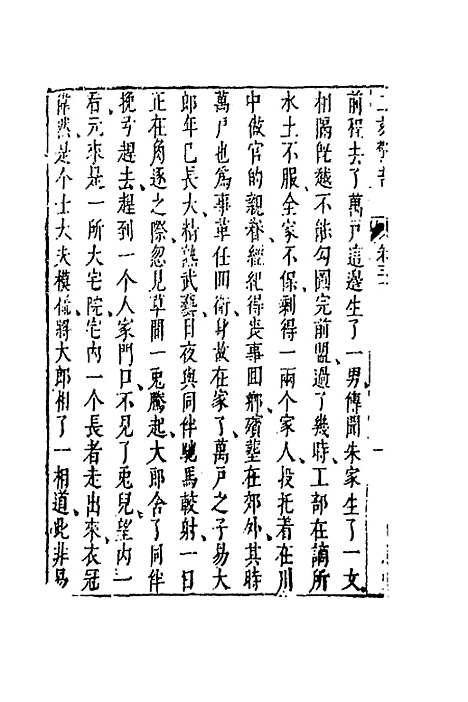 前程去了萬戶這邊生了一男傳聞朱家生了一女
相隔旣遠不能勾圓完前盟過了幾時工部在謫所
水土不服全家不保剩得一兩個家人投托着在川
中做官的親眷經紀得喪事回鄉殯塟在郊外其時
萬戶也爲事革任回衛身故在家了萬戶之子易大
郎年已長大精熟武藝日夜與同伴馳馬較射一日
正在角逐之際忽見草間一兎騰起大郎舍了同伴
挽弓趕去趕到一个人家門口不見了兎兒望內一
看元來是一所大宅院宅內一个長者走出來衣冠
偉然是个士大夫模樣將大郎相了一相道此非易